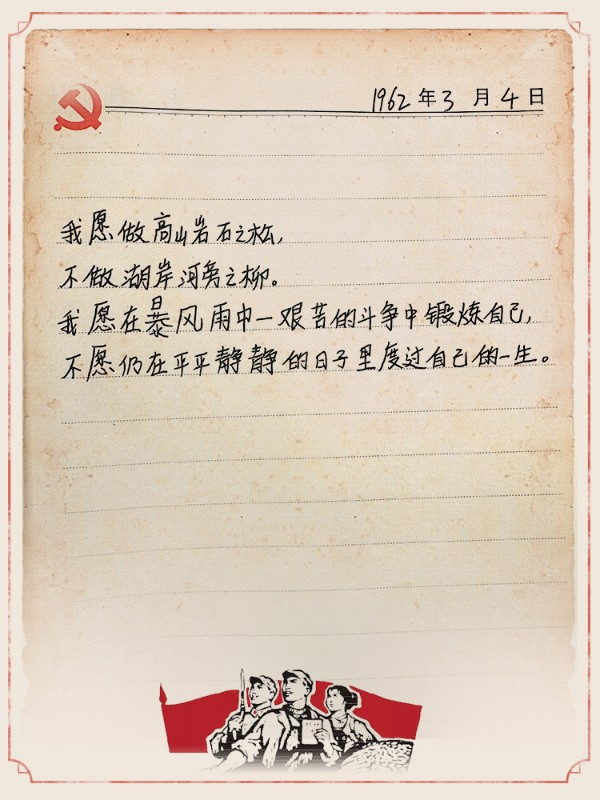 1962年3月4日
我愿做高山岩石之松,
不做湖岸河旁之柳。
我愿在暴风雨中一艰苦的斗争中锻炼自己,
不愿仍在平平静静的日子里度过自己的一生。